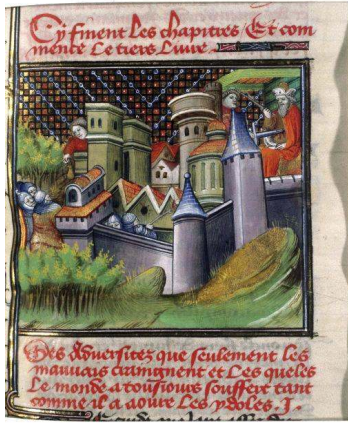 Cy finent les chapitres Et com
mence Le tiers Liure
Des Aduersitez que seulement les
mauuais craingnent et Les queles
Le monde a tousiours souffert tant
comme il a aoure Les ydoles . J .